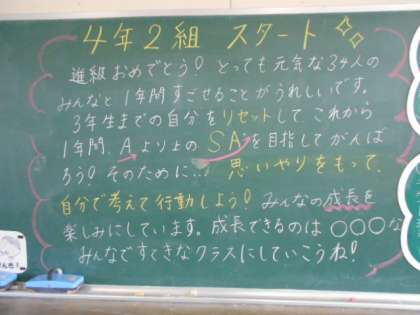 4年2組 スタート
進級おめでとう! とっても元気な34人の
みんなと1年間すごせることがうれしいです。
3年生までの自分をリセットしてこれから
1年間、Aより上のSAを目指してがんば
ろう! そのために… 思いやりをもって、
自分で考えて行動しよう! みんなの成長を
楽しみにしています。成長できるのは○○○な
みんなですてきなクラスにしていこうね!